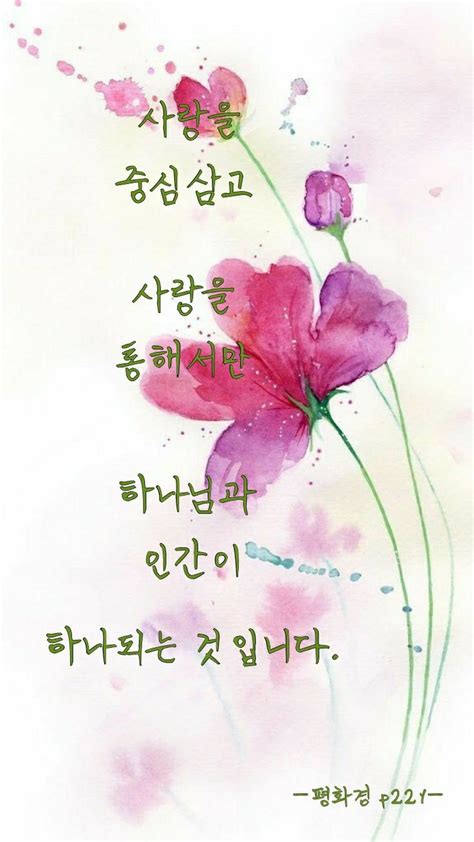 사랑을
중심삼고
사랑을
통해서만
하나님과
인간이
하나되는 것 입니다.
-평화경 p221-